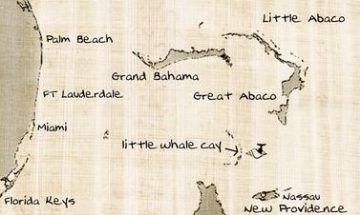 Little Abaco
Palm Beach
Grand Bahama
FT Lauderdale
Great Abaco
Miami
little whale cay
Florida Keys
Nassau
New Providence